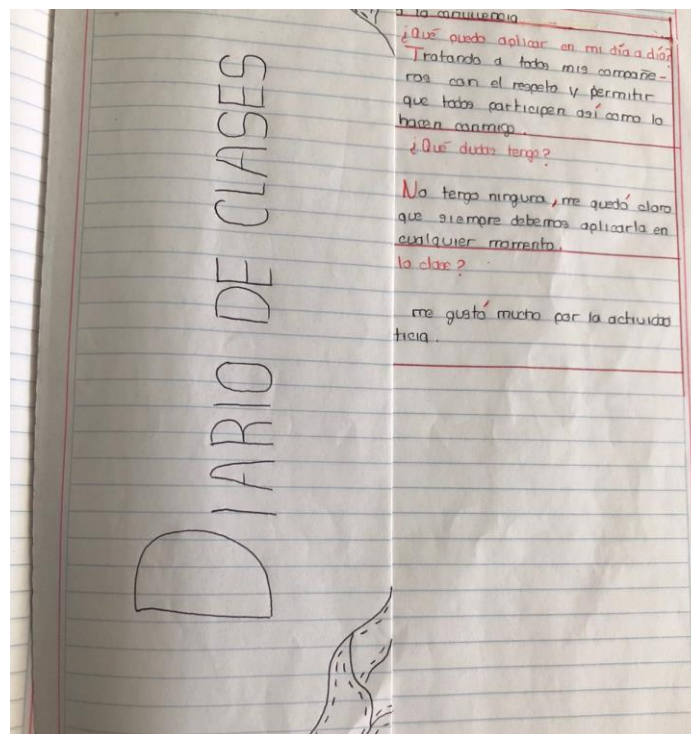 DIARIO DE CLASES
a la convivencia
¿Qué puedo aplicar en mi día a día?
Tratando a todos mis compañe-
ros con el respeto y permitir
que todos participen así como lo
hacen conmigo.
¿Qué dudas tengo?
No tengo ninguna, me quedó claro
que siempre debemos aplicarla en
cualquier momento.
la clase?
me gustó mucho por la actividad
ticia.